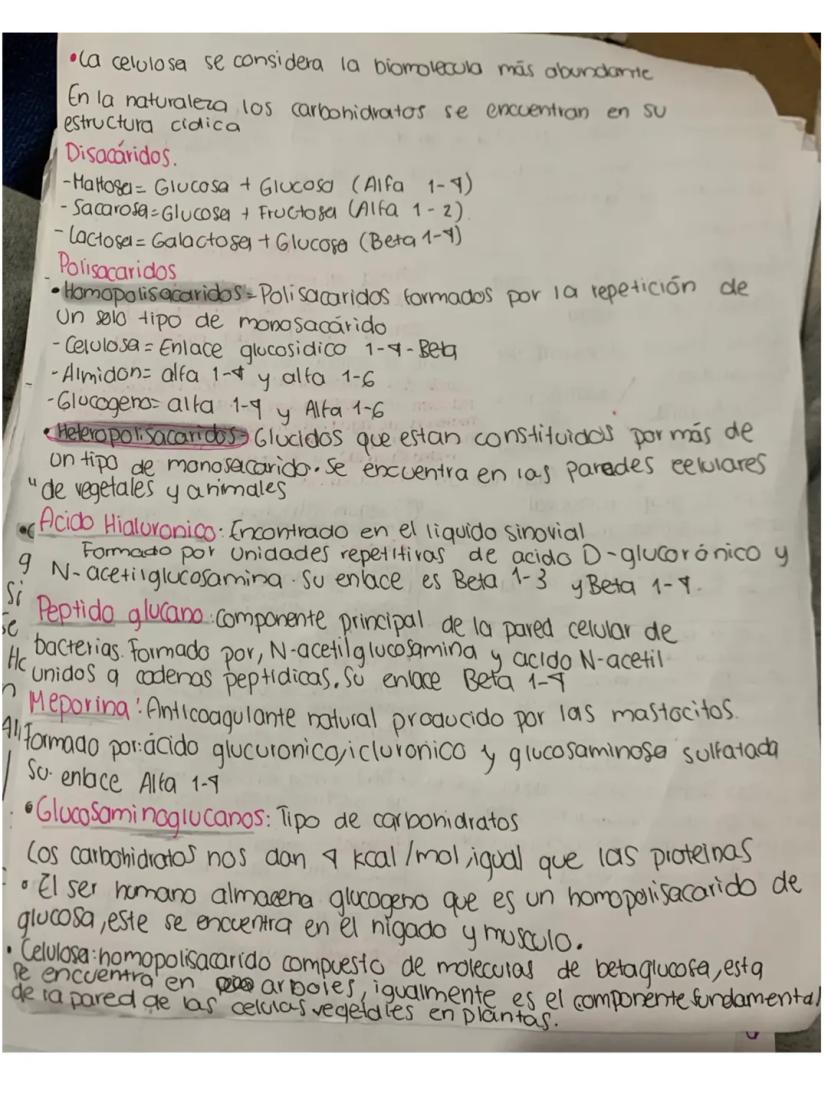 •La celulosa se considera la biomolecula más abundante
En la naturaleza los carbohidratos se encuentran en su
estructura cíclica
Disacáridos.
-Maltosa= Glucosa + Glucosa (Alfa 1-4)
-Sacarosa=Glucosa + Fructosa (Alfa 1-2)
-Lactosa= Galactosa + Glucosa (Beta 1-4)
Polisacaridos
•Homopolisacaridos=Polisacaridos formados por la repetición de
un solo tipo de monosacárido
-Celulosa= Enlace glucosidico 1-4-Beta
-Almidon= alfa 1-4 y alfa 1-6
-Glucogeno= alfa 1-4 y Alfa 1-6
•Heteropolisacaridos= Glucidos que estan constituidos por más de
un tipo de monosacarido. Se encuentra en las paredes celulares
de vegetales y animales
•Acido Hialuronico: Encontrado en el liquido sinovial
Formado por unidades repetitivas de acido D-glucorónico y
N-acetilglucosamina. Su enlace es Beta 1-3 y Beta 1-4.
Peptido glucano: componente principal de la pared celular de
bacterias. Formado por, N-acetilglucosamina y acido N-acetil
unidos a cadenas peptidicas. Su enlace Beta 1-4
Meporina: Anticoagulante natural producido por las mastocitos.
Formado por:ácido glucuronico/icluronico y glucosaminosa sulfatada
Su enlace Alfa 1-4
•Glucosaminoglucanos: Tipo de carbohidratos
Los carbohidratos nos dan 4 kcal/mol, igual que las proteinas
•El ser humano almacena glucogeno que es un homopolisacarido de
glucosa, este se encuentra en el higado y musculo.
•Celulosa: homopolisacarido compuesto de moleculas de betaglucosa, esta
se encuentra en arboles, igualmente es el componente fundamental
de la pared de las celulas vegetales en plantas.